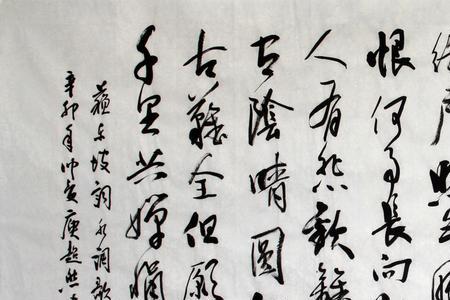 户照无眠
恨何事长向
人有悲歡離
有陰晴圓
古難全但願
千里共嬋娟
蘇东坡詞水调歌
辛卯年仲夏